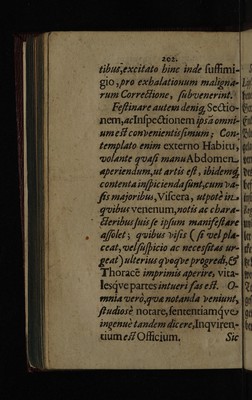 202.
tibus, excitato hinc inde suffimi-
gio, pro exhalationum maligna-
rum Correctione, subvenerint.
Festinare autem deniq; Sectio-
nem, ac Inspectionem ipsa omni-
um est convenientissimum; Con-
templato enim externo Habitu,
volante quasi manu Abdomen
aperiendum, ut artis est, ibidemq;
contenta inspicienda sunt, cum va-
sis majoribus, Viscera, utpote in
qvibus venenum, notis ac chara-
cteribus suis se ipsum manifestare
assolet; qvibus visis (si vel pla-
ceat, vel suspicio ac necessitas ur-
geat) ulterius qvoqve progredi, &
Thoracē imprimis aperire, vita-
lesqve partes intueri fas est. O-
mnia verò, qvæ notanda veniunt,
studiosè notare, sententiamqve
ingenuè tandem dicere, Inqviren-
tium est Officium.
Sic